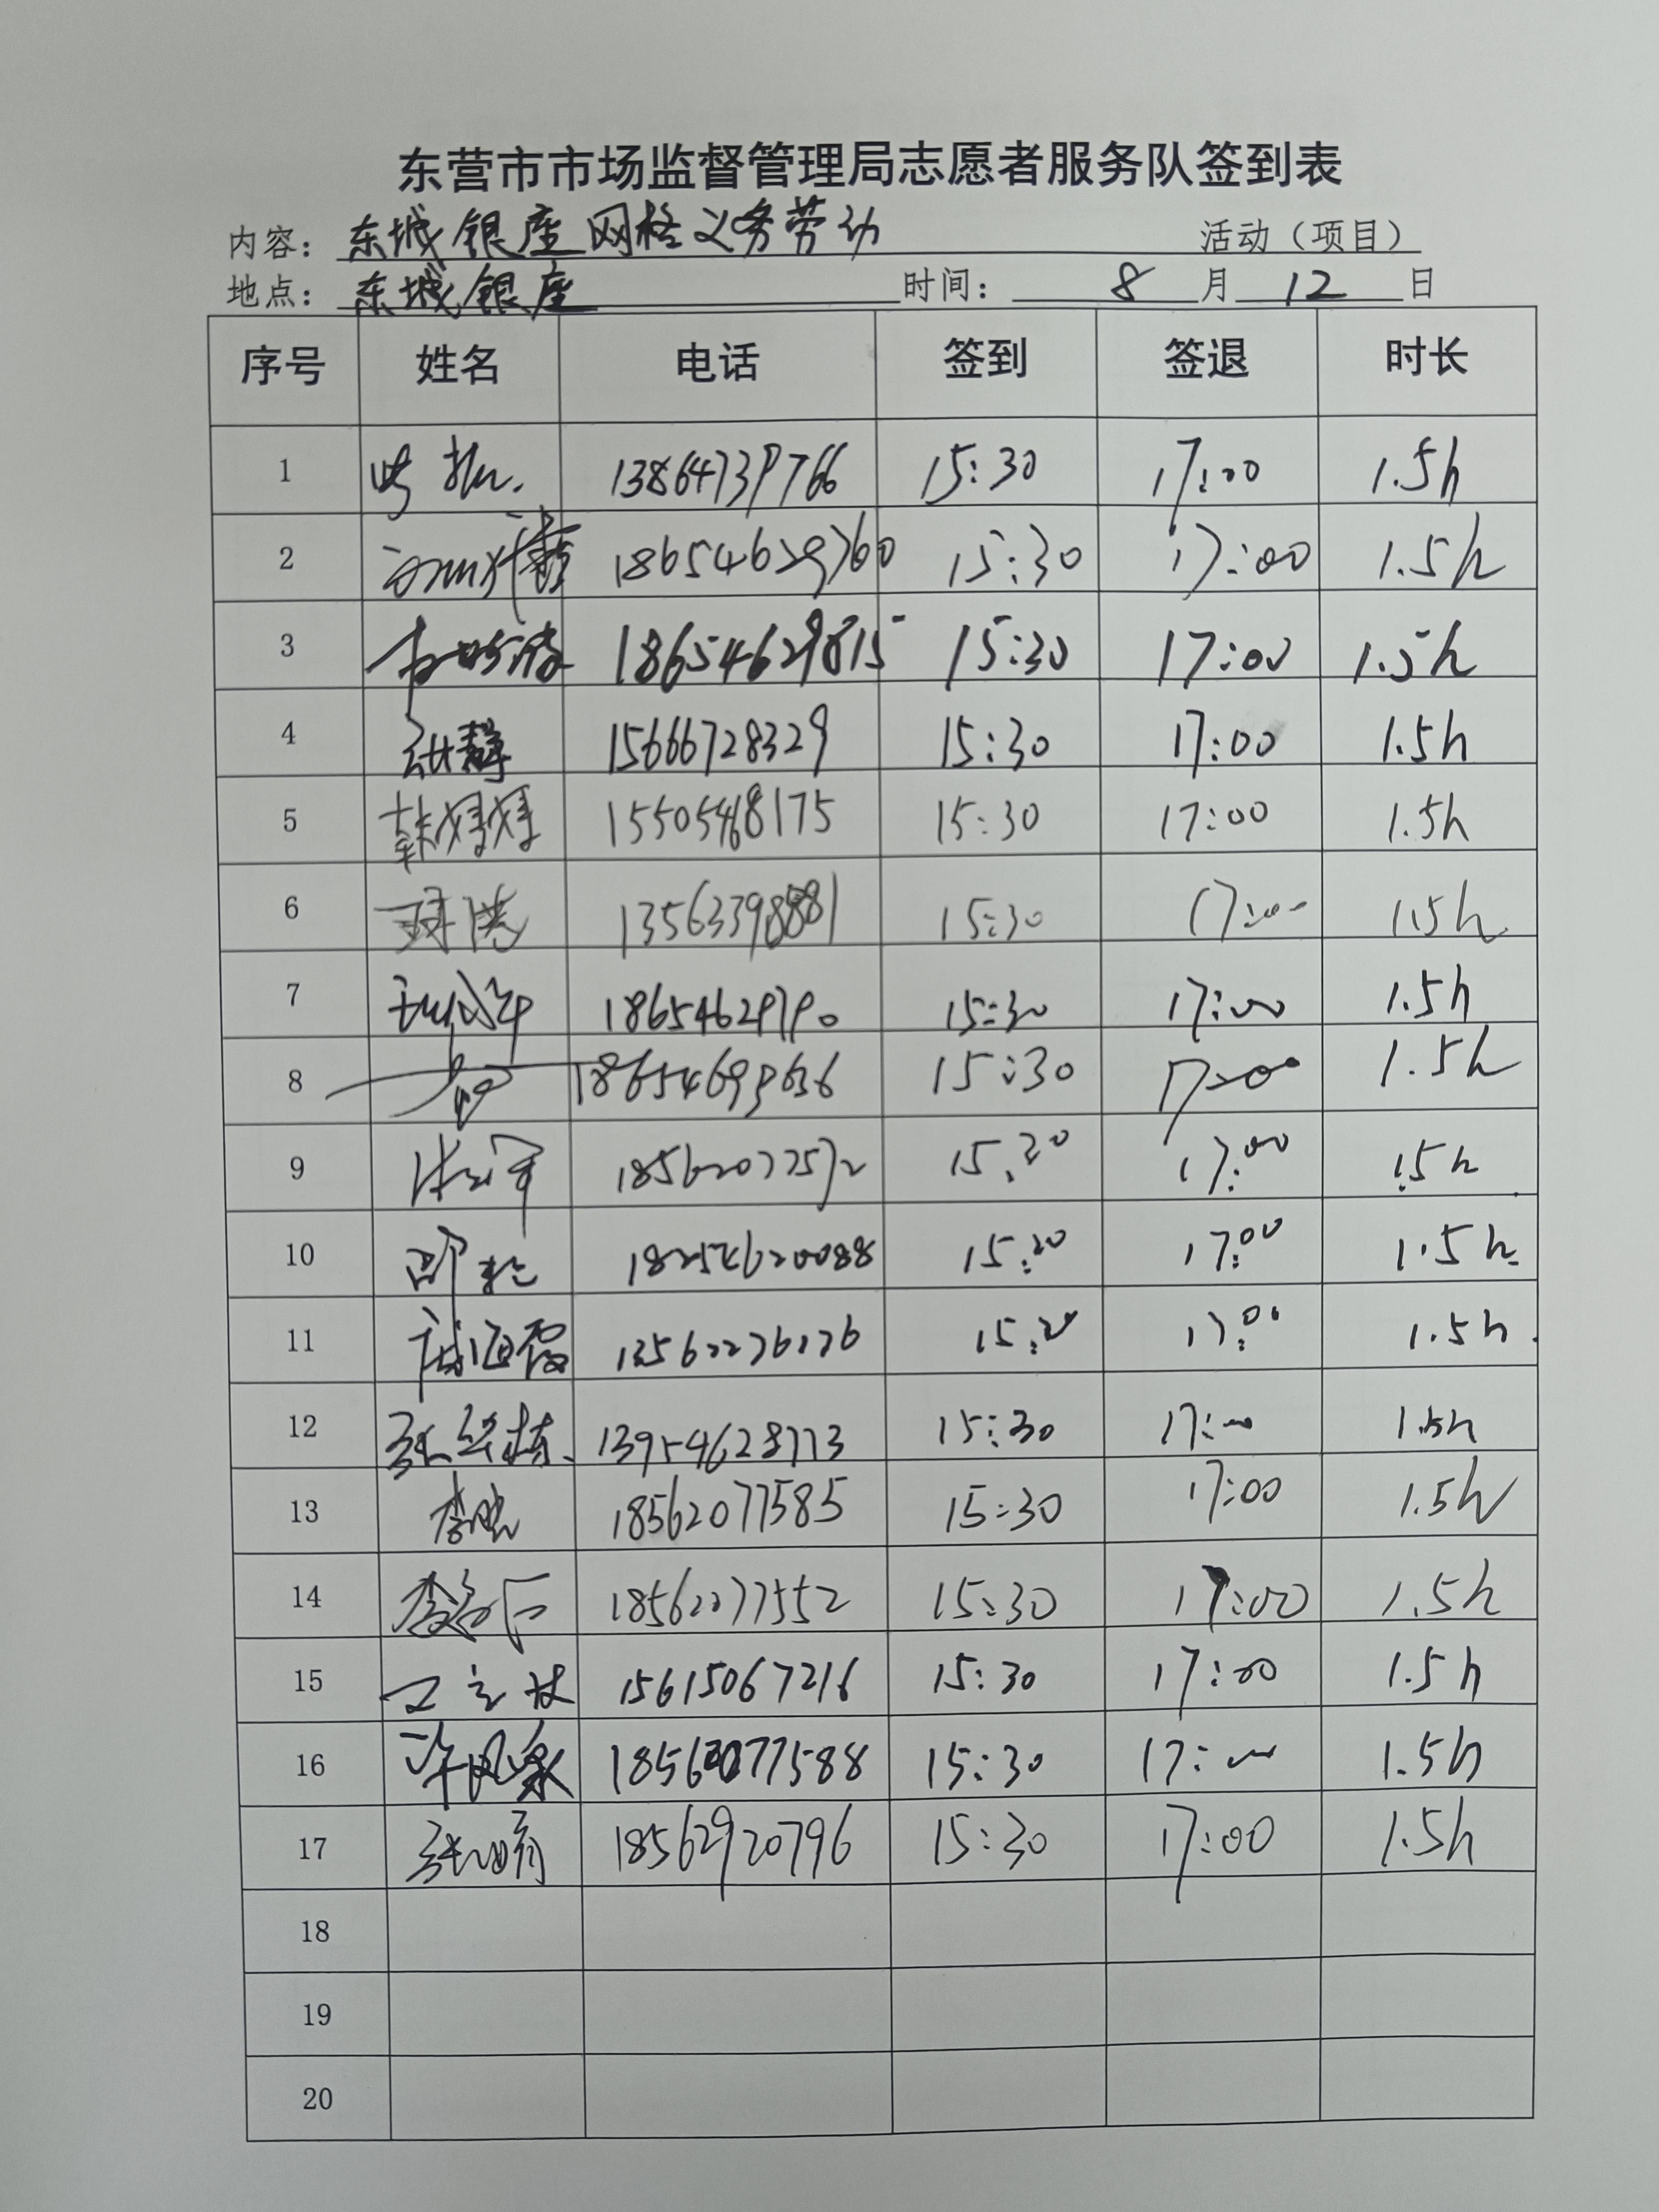 东营市市场监督管理局志愿者服务队签到表
内容：东城银座网格义务劳动 活动（项目）
地点：东城银座 时间： 8 月 12 日
序号 姓名 电话 签到 签退 时长
1 13864739766 15:30 17:00 1.5h
2 18654629760 15:30 17:00 1.5h
3 18654629815 15:30 17:00 1.5h
4 张静 15666728329 15:30 17:00 1.5h
5 韩婷婷 15505468175 15:30 17:00 1.5h
6 15:30 17:00 1.5h
7 18654629790 15:30 17:00 1.5h
8 15:30 17:00 1.5h
9 18562077572 15:30 17:00 1.5h
10 18254620088 15:30 17:00 1.5h
11 15:30 17:00 1.5h
12 13954628773 15:30 17:00 1.5h
13 李晓 18562077585 15:30 17:00 1.5h
14 18562077552 15:30 17:00 1.5h
15 15615067216 15:30 17:00 1.5h
16 许凤泉 18562077588 15:30 17:00 1.5h
17 张晓娟 18562920796 15:30 17:00 1.5h
18
19
20